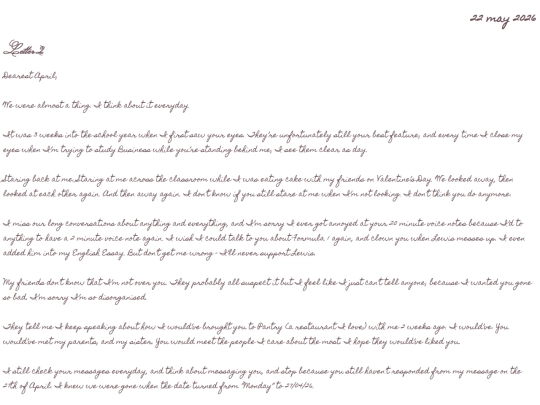 22 may 2026
Letter 3
Dearest April,
We were almost a thing. I think about it everyday.
It was 3 weeks into the school year when I first saw your eyes. They're unfortunately still your best feature, and every time I close my
eyes when I'm trying to study Business while you're standing behind me, I see them clear as day.
Staring back at me. Staring at me across the classroom while I was eating cake with my friends on Valentine's Day. We looked away, then
looked at each other again. And then away again. I don't know if you still stare at me when I'm not looking. I don't think you do anymore.
I miss our long conversations about anything and everything, and I'm sorry I ever got annoyed at your 20 minute voice notes because I'd do
anything to have a 2 minute voice note again. I wish I could talk to you about Formula 1 again, and clown you when Lewis messes up. I even
added him into my English Essay. But don't get me wrong - I'll never support Lewis.
My friends don't know that I'm not over you. They probably all suspect it but I feel like I just can't tell anyone, because I wanted you gone
so bad. I'm sorry I'm so disorganised.
They tell me I keep speaking about how I would've brought you to Pantry (a restaurant I love) with me 2 weeks ago. I would've. You
would've met my parents, and my sister. You would meet the people I care about the most. I hope they would've liked you.
I still check your messages everyday, and think about messaging you, and stop because you still haven't responded from my message on the
27th of April. I knew we were gone when the date turned from "Monday" to 27/04/26.